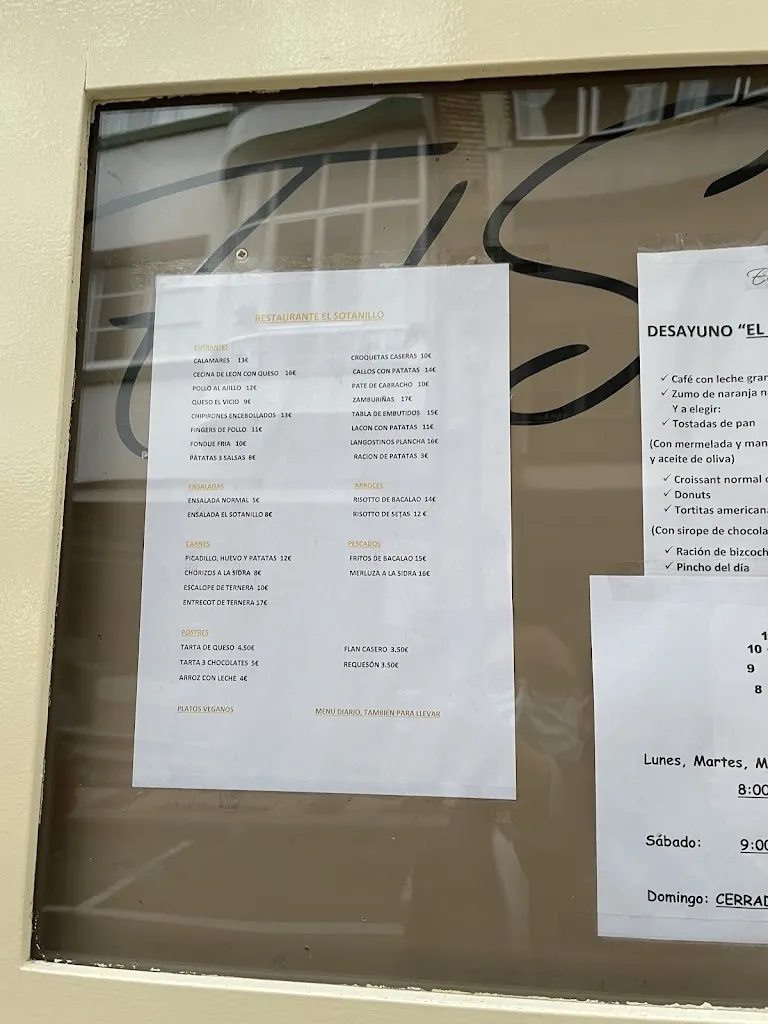 RESTAURANTE EL SOTANILLO
ENTRANTES
CALAMARES 13€
CECINA DE LEON CON QUESO 16€
POLLO AL AJILLO 12€
QUESO EL VICIO 9€
CHIPIRONES ENCEBOLLADOS 13€
FINGERS DE POLLO 11€
FONDUE FRIA 10€
PATATAS 3 SALSAS 8€
CROQUETAS CASERAS 10€
CALLOS CON PATATAS 14€
PATE DE CABRACHO 10€
ZAMBURIÑAS 17€
TABLA DE EMBUTIDOS 15€
LACON CON PATATAS 11€
LANGOSTINOS PLANCHA 16€
RACION DE PATATAS 3€
ENSALADAS
ENSALADA NORMAL 5€
ENSALADA EL SOTANILLO 8€
ARROCES
RISOTTO DE BACALAO 14€
RISOTTO DE SETAS 12 €
CARNES
PICADILLO, HUEVO Y PATATAS 12€
CHORIZOS A LA SIDRA 8€
ESCALOPE DE TERNERA 10€
ENTRECOT DE TERNERA 17€
PESCADOS
FRITOS DE BACALAO 15€
MERLUZA A LA SIDRA 16€
POSTRES
TARTA DE QUESO 4.50€
TARTA 3 CHOCOLATES 5€
ARROZ CON LECHE 4€
FLAN CASERO 3.50€
REQUESÓN 3.50€
PLATOS VEGANOS
MENU DIARIO, TAMBIEN PARA LLEVAR
DESAYUNO "EL
✓ Café con leche gran
✓ Zumo de naranja n
Y a elegir:
✓ Tostadas de pan
(Con mermelada y man
y aceite de oliva)
✓ Croissant normal
✓ Donuts
✓ Tortitas american
(Con sirope de chocola
✓ Ración de bizcoch
✓ Pincho del día
1
10
9
8
Lunes, Martes, M
8:00
Sábado: 9:00
Domingo: CERRAD